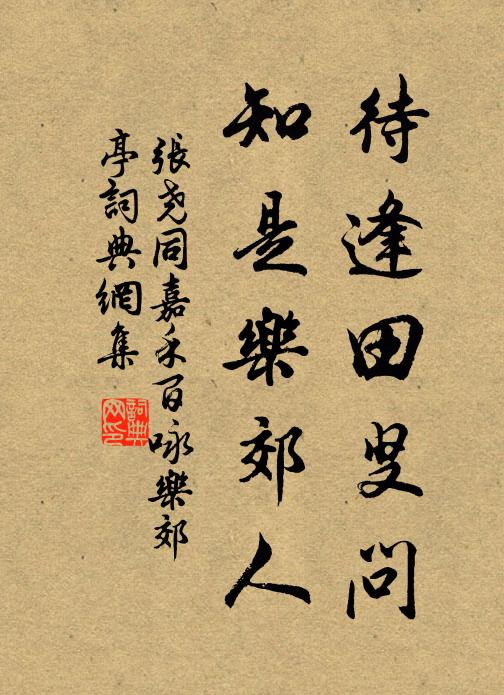 待逢田叟問
知是樂郊人
張堯同嘉禾百咏樂郊
亭詞典網集
詞典
网印